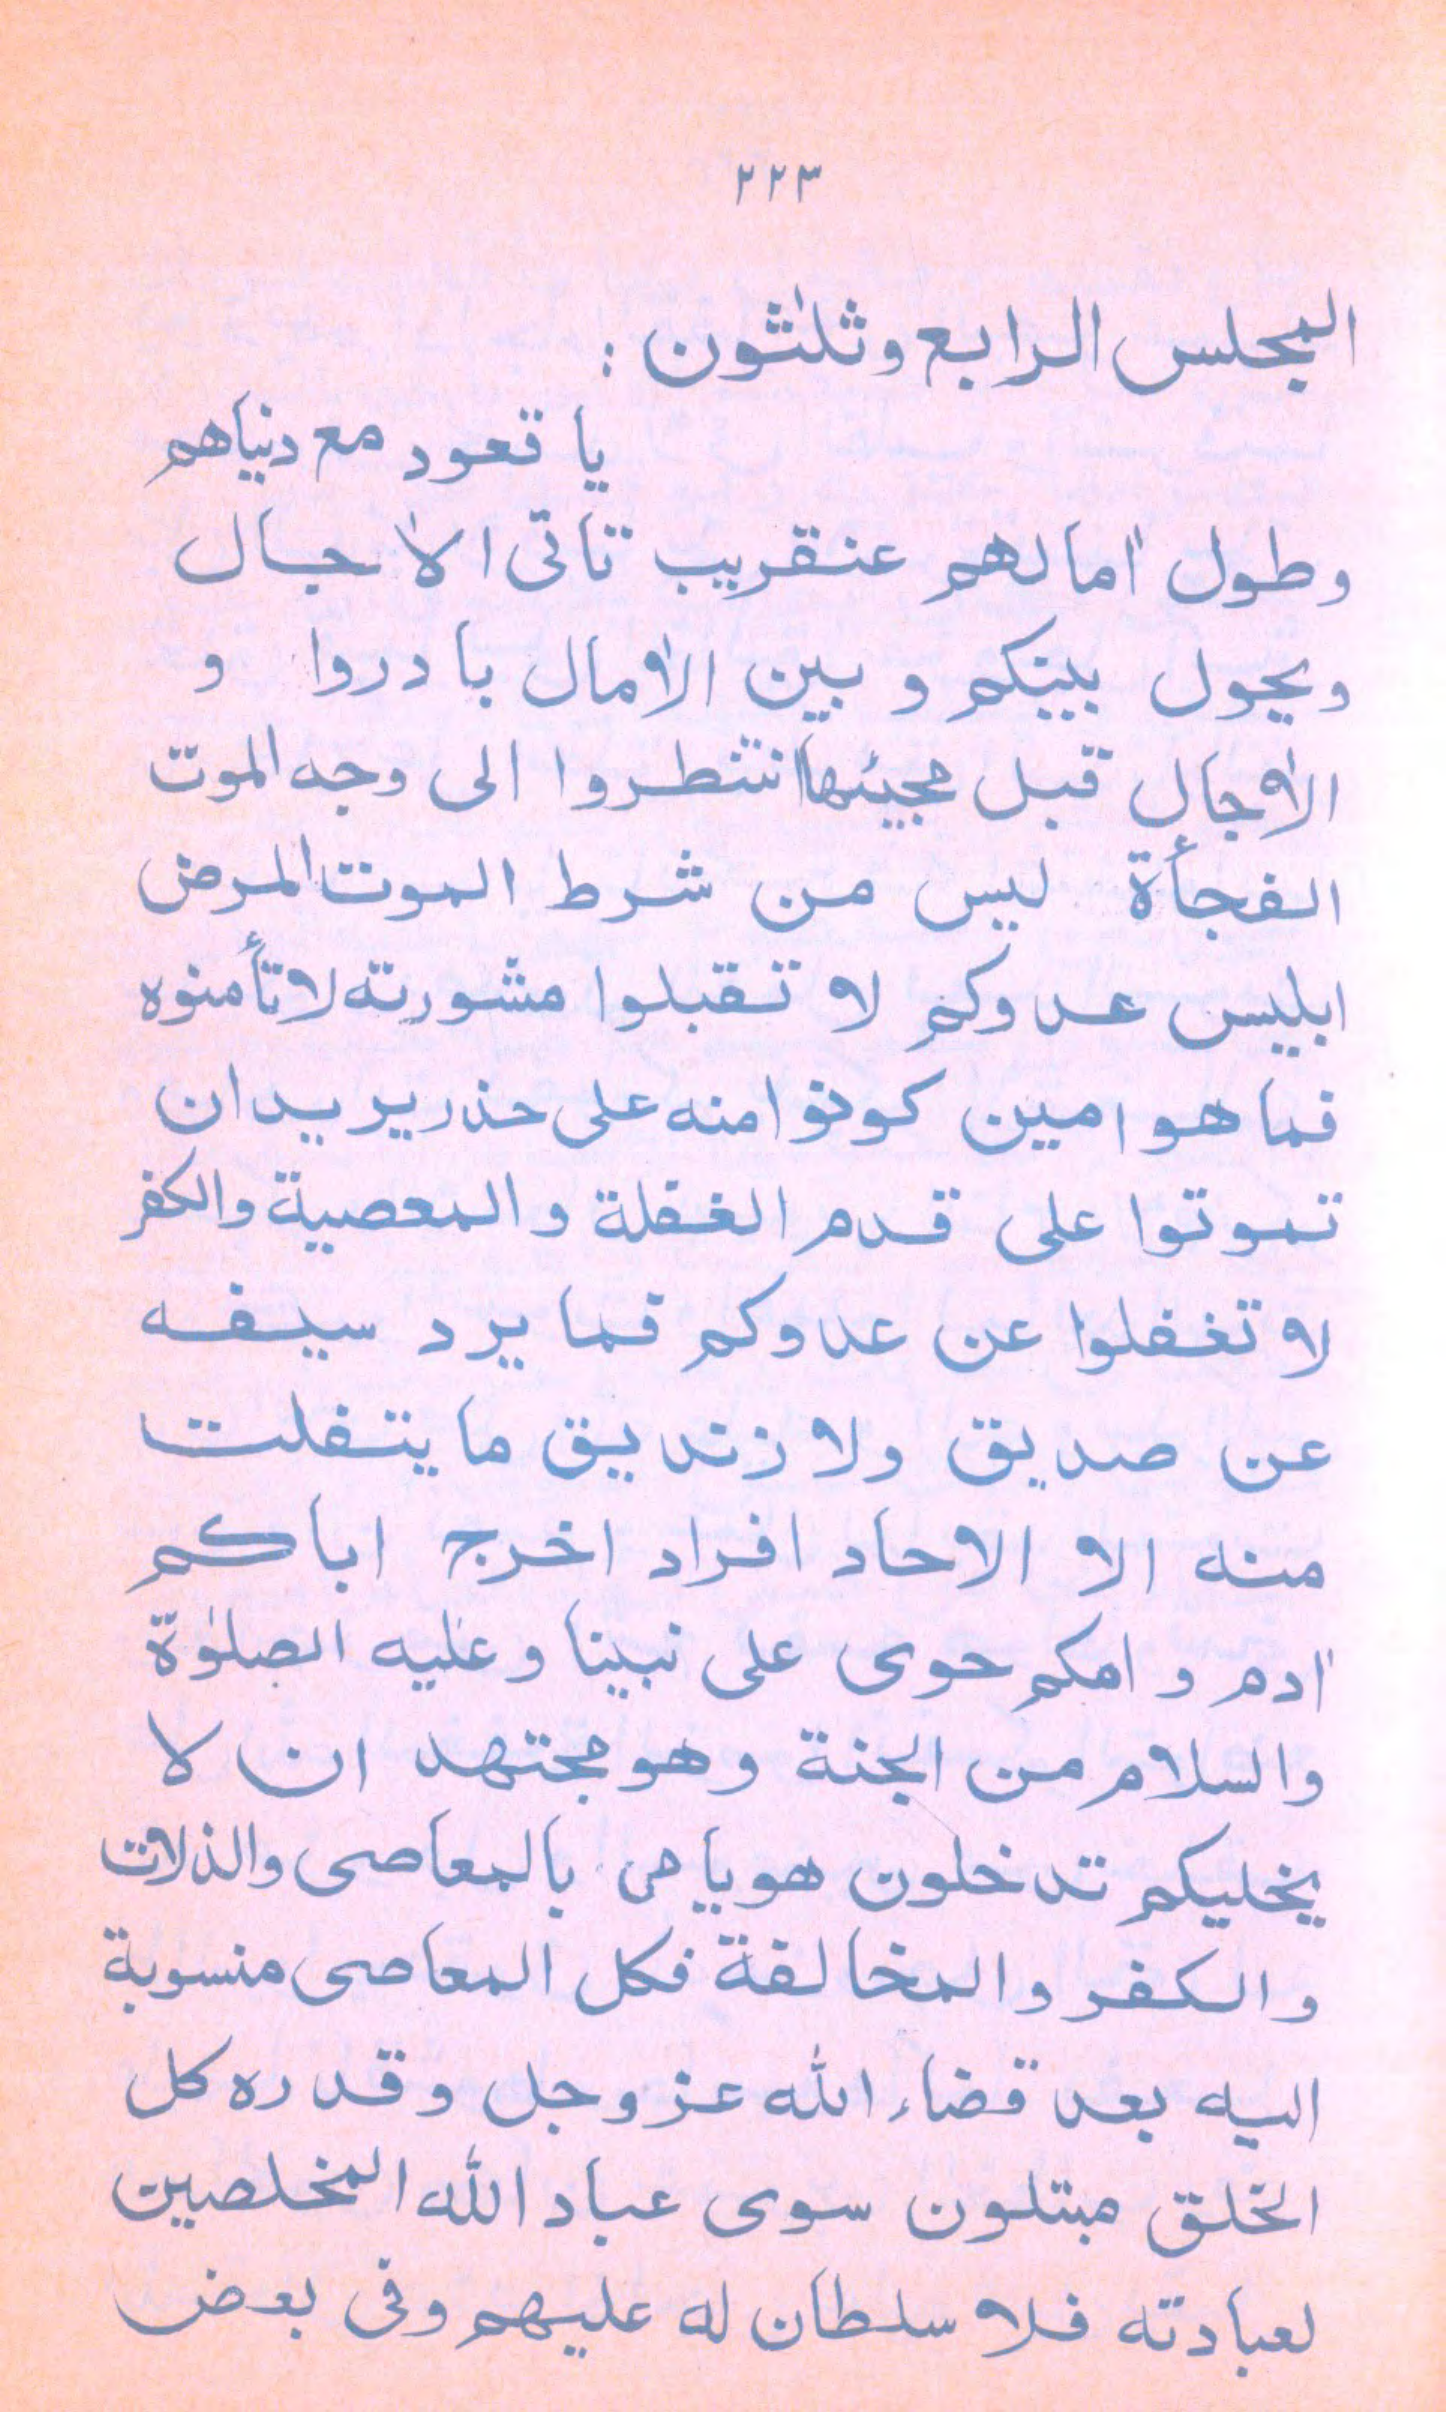 ٢٢٣
المجلس الرابع وثلٰثون :
يا قعود مع دنياهم
وطول اٰمالهم عنقريب تاتى الاٰجال
ويحول بينكم و بين الاٰمال بادروا و
الاٰجال قبل مجيئها انتطروا الى وجه الموت
الفجأة ليس من شرط الموت المرض
ابليس عدوكم لا تقبلوا مشورته لا تأمنوه
فما هو امين كونوا منه على حذر يريد ان
تموتوا على قدم الغفلة والمعصية والكفر
لا تغفلوا عن عدوكم فما يرد سيفه
عن صديق ولا زنديق ما يتفلت
منه الا الاحاد افراد اخرج اباكم
اٰدم و امكم حوى على نبينا وعليه الصلوٰة
والسلام من الجنة وهو مجتهد ان لا
يخليكم تدخلون هو يامر بالمعاصى والذلات
والكفر والمخالفة فكل المعاصى منسوبة
اليه بعد قضاء الله عز وجل وقدره كل
الخلق مبتلون سوى عباد الله المخلصين
لعبادته فلا سلطان له عليهم وفى بعض